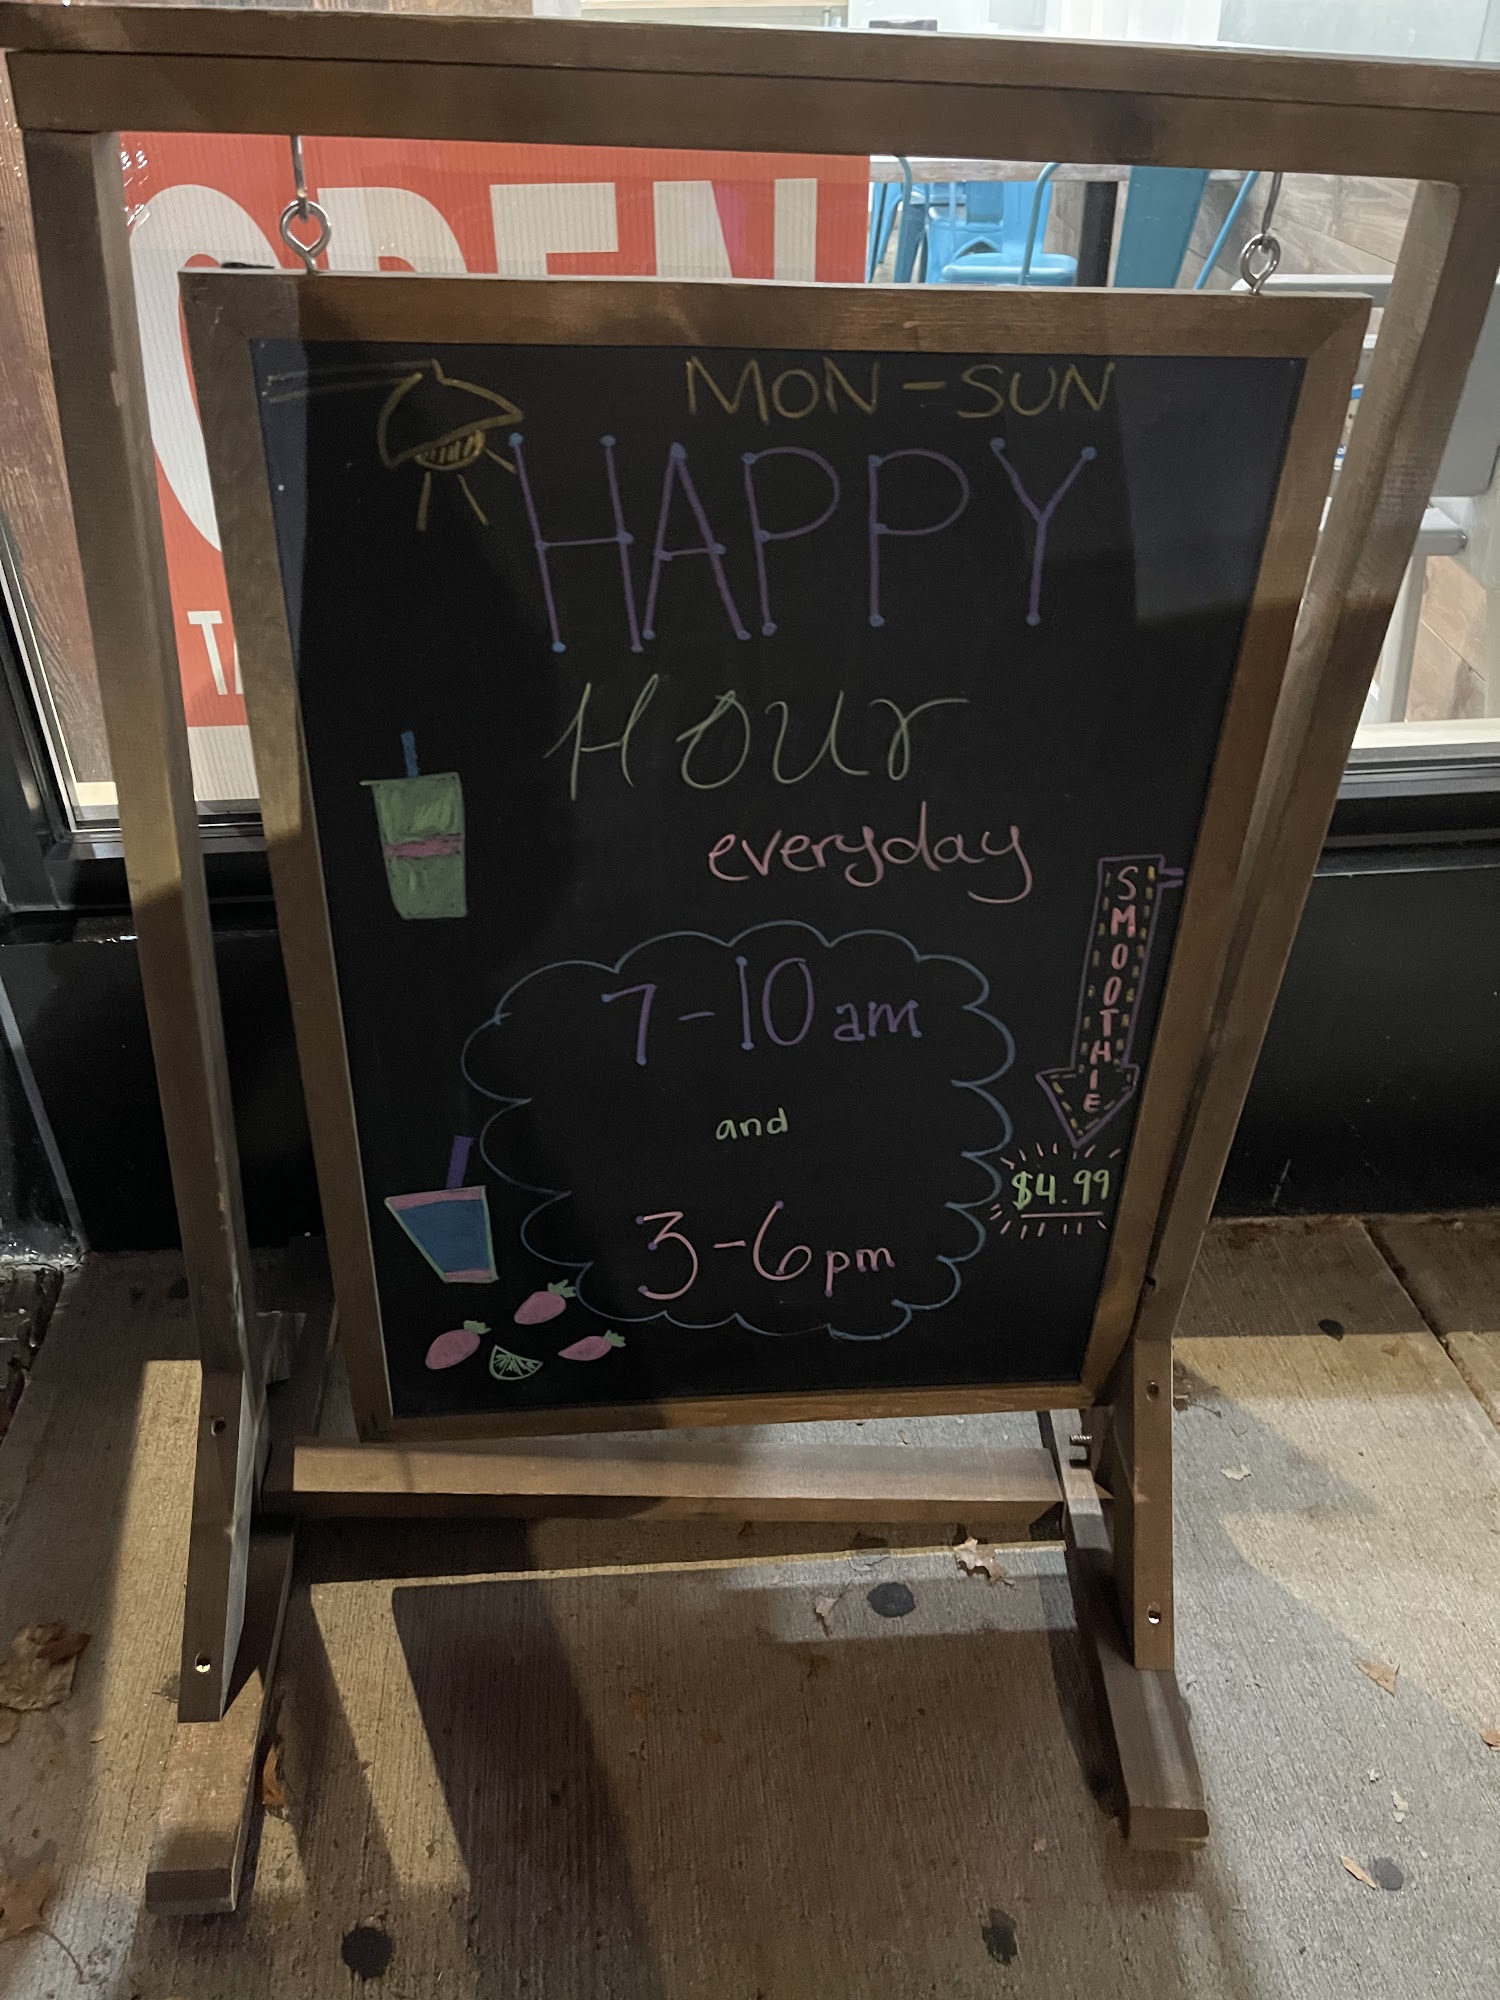 OPEN
MON-SUN
HAPPY
Hour
everyday
7-10 am
and
3-6pm
SMOOTHIE
$4.99